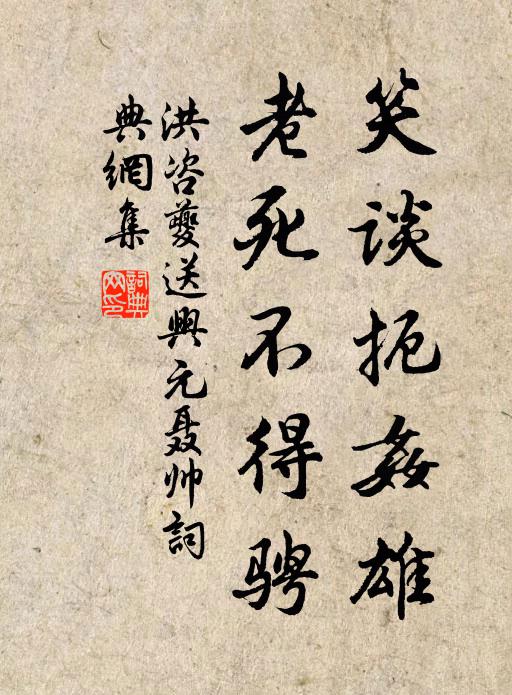 笑谈扼姦雄
老死不得骋
洪咨夔送興元聂帅詞
典網集
詞典网印